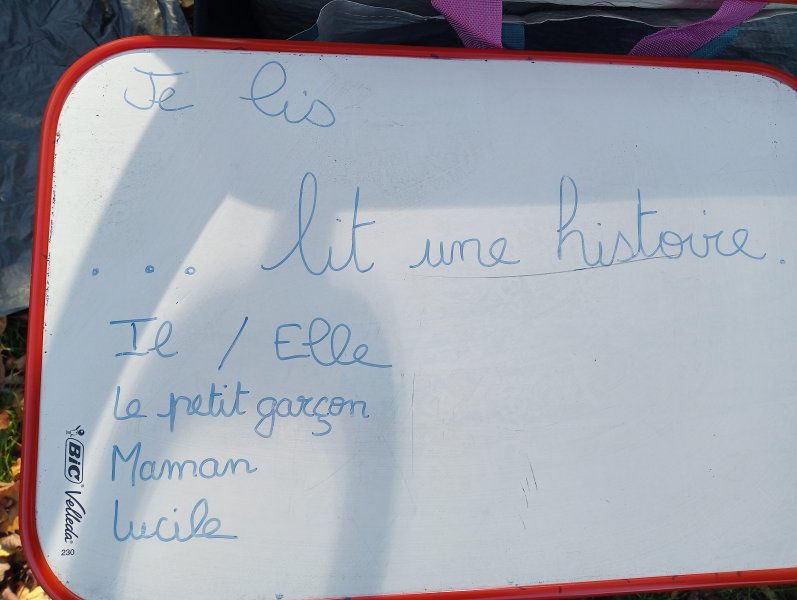 Je lis
... lit une histoire.
Il / Elle
Le petit garçon
Maman
Lucile
BIC Velleda
230